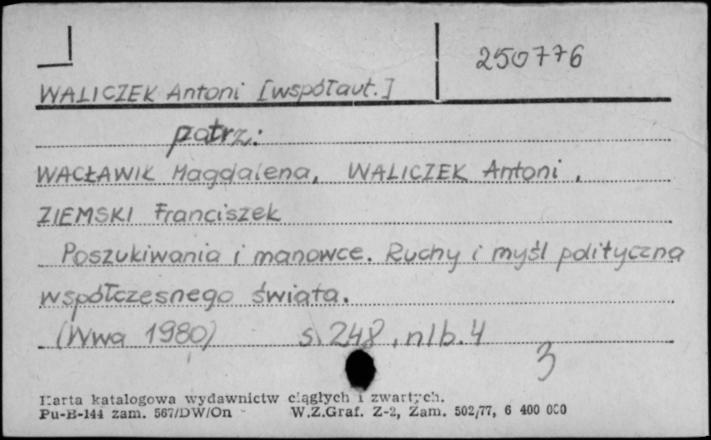 250776
WALICZEK Antoni [współaut.]
patrz:
WACŁAWIK Magdalena, WALICZEK Antoni,
ZIEMSKI Franciszek
Poszukiwania i manowce. Ruchy i myśl polityczna
współczesnego świata.
(Wwa 1980) s. 248, nlb. 4
3
Karta katalogowa wydawnictw ciągłych i zwartych.
Pu-B-144 zam. 567/DW/On W.Z.Graf. Z-2, Zam. 502/77, 6 400 000